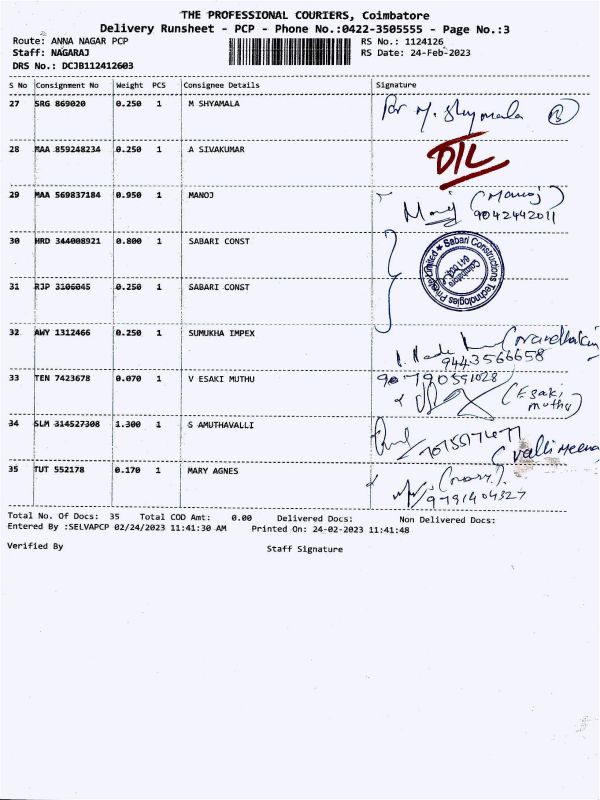 THE PROFESSIONAL COURIERS, Coimbatore
Delivery Runsheet - PCP - Phone No.:0422-3505555 - Page No.:3
Route: ANNA NAGAR PCP RS No.: 1124126
Staff: NAGARAJ RS Date: 24-Feb-2023
DRS No.: DCJB112412603
S No Consignment No Weight PCS Consignee Details Signature
27 SRG 869020 0.250 1 M SHYAMALA For M. Shymala
28 MAA 859248234 0.250 1 A SIVAKUMAR D/L
29 MAA 569837184 0.950 1 MANOJ (Manoj)
9042442011
30 HRD 344008921 0.800 1 SABARI CONST
Sabari Constructions Technologies Private Limited ★ Coimbatore
31 RJP 3106045 0.250 1 SABARI CONST
32 AWY 1312466 0.250 1 SUMUKHA IMPEX
9443566658
33 TEN 7423678 0.070 1 V ESAKI MUTHU
(Esaki
muthu)
34 SLM 314527308 1.300 1 S AMUTHAVALLI
35 TUT 552178 0.170 1 MARY AGNES (mary).
9791404327
Total No. Of Docs: 35 Total COD Amt: 0.00 Delivered Docs: Non Delivered Docs:
Entered By :SELVAPCP 02/24/2023 11:41:30 AM Printed On: 24-02-2023 11:41:48
Verified By Staff Signature